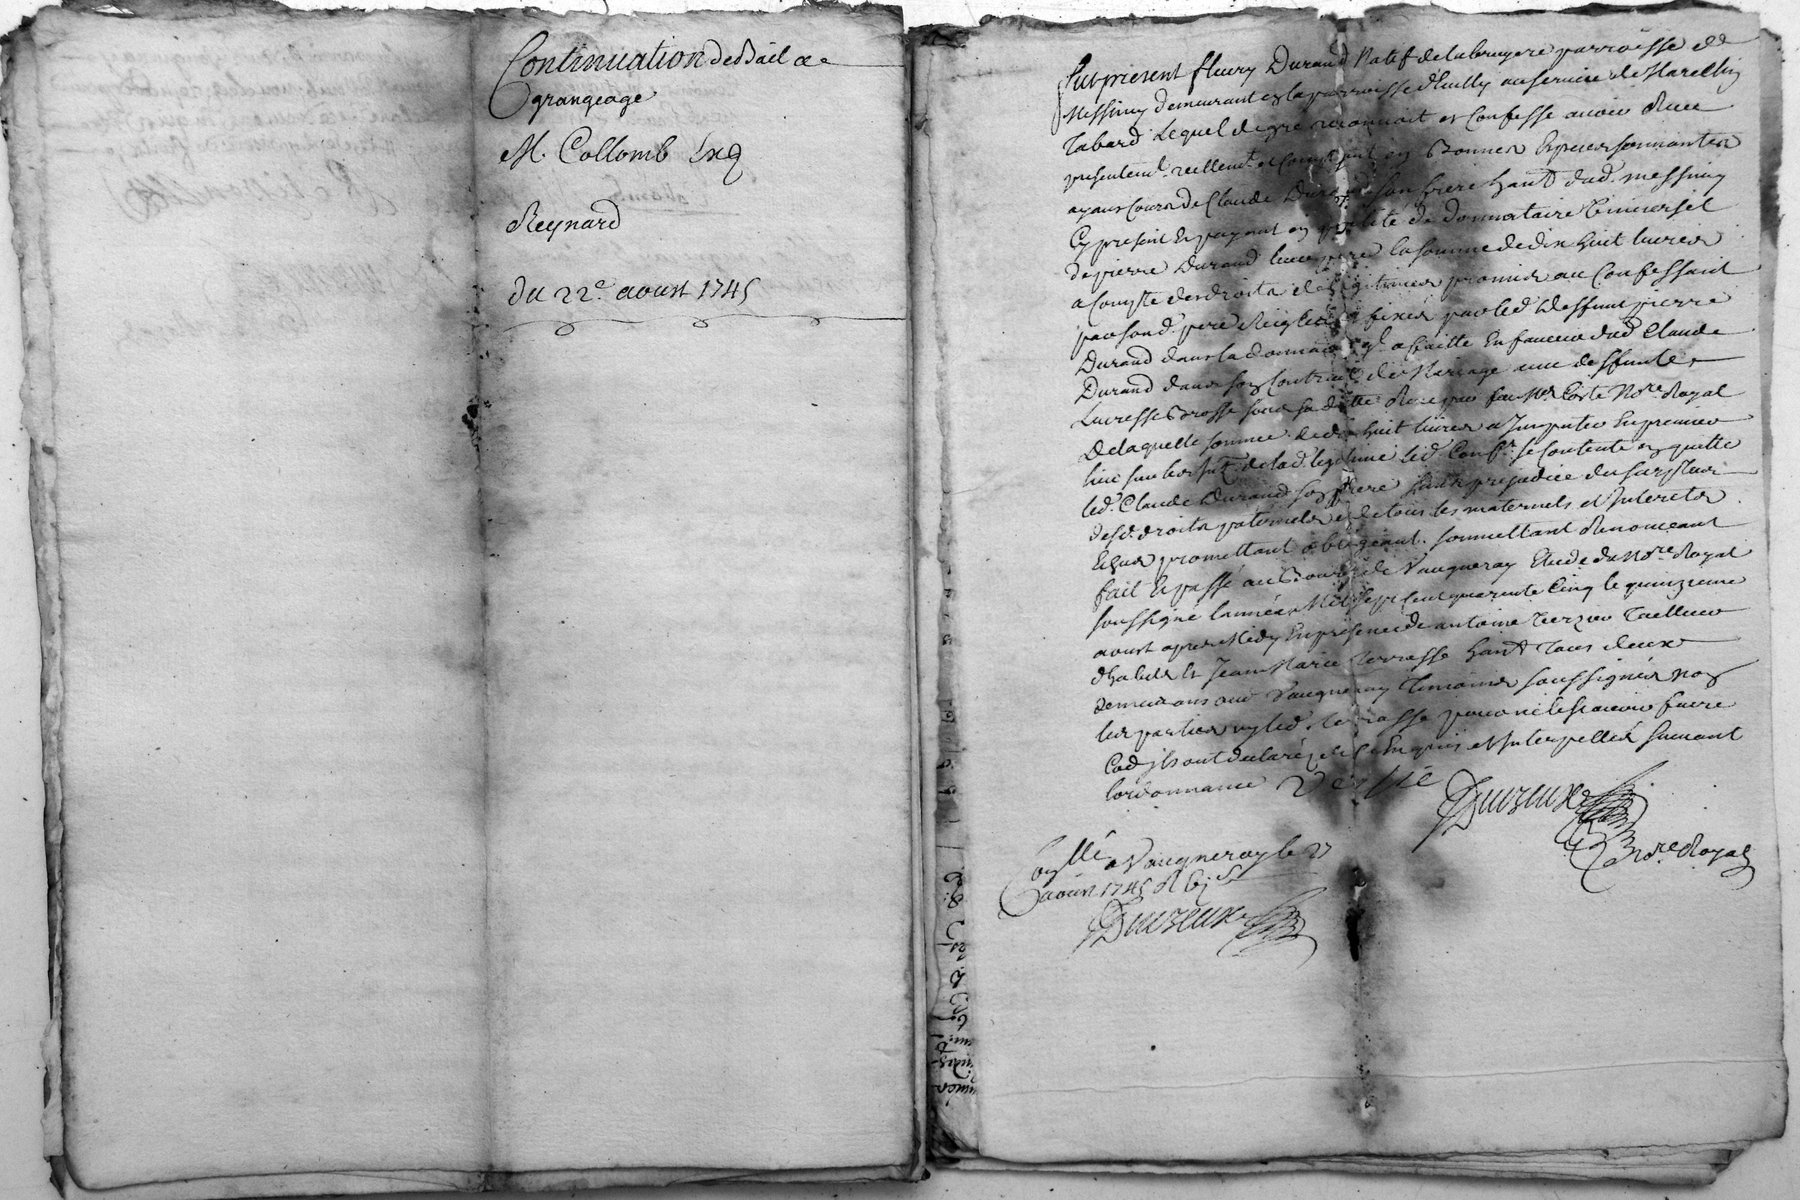 Continuation de Bail a
grangeage
M. Collomb
Reynard
du 22e aoust 1745
Fut present fleury Durand Natif de labruyere parroisse de
Messimy demeurant en la parroisse
Tabard Lequel de gre reconnoit et Confesse avoir Receu
presentemt reellemt et comptant en Bonnes Especes sonnantes
ayant Cours de Claude Durand son frere habt dud. messimy
Cy present Et payant en qualité de donnataire Universel
de pierre Durand leur pere la somme de dix huit livres
a Compte des droits de legitimes promis au Confessant
par sond. pere Reigles et fixés par led. Deffunt pierre
Durand dans la donnation qu'il a faitte En faveur dud Claude
Durand dans son Contrat de Mariage avec deffunte
Lucresse Brosse sous sa datte Receu par feu Me Nore Royal
De laquelle somme de dix huit livres a Imputer En premier
lieu sur les de lad. legitime led. Conft. se Contente en quitte
led. Claude Durand son frere sans prejudice du surplus
desd. droits paternels et de tous les maternels et Interets
promettant obligeant. soumettant Renonceant
fait Et passé au Bourg de Vaugneray Etude du Nore Royal
soussigné lannée Mil sept cent quarante Cinq le quinzieme
aoust apres Midy En presence de antoine tailleur
dhabits Et Jean Marie Terrasse habt Tous deux
demeurans aud Vaugneray Temoins soussignés non
les parties ny led. terrasse pour ne le sçavoir faire
ils ont declaréz de ce Enquis et Interpellés suivant
lordonnance
Nore Royal
Conllé a Vaugneray le 27
aoust 1745